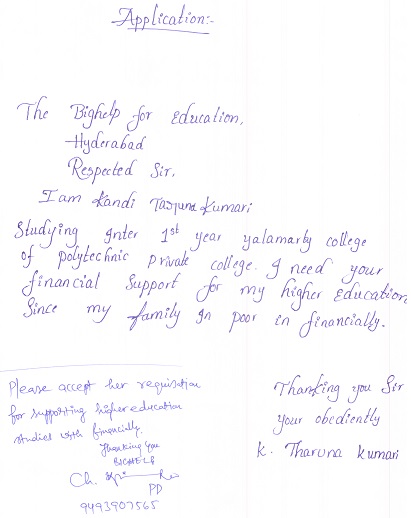 Application:-
The Bighelp for Education,
Hyderabad
Respected Sir,
I am Kandi Taruna Kumari
Studying Inter 1st year yalamarty college
of polytechnic private college. I need your
financial Support for my higher Education
Since my family In poor in financially.
Thanking you Sir
your obediently
K. Tharuna Kumari
Please accept her requisition
for supporting higher education
studies with financially.
Thanking you
BIGHELP
Ch.
PD
9493907565